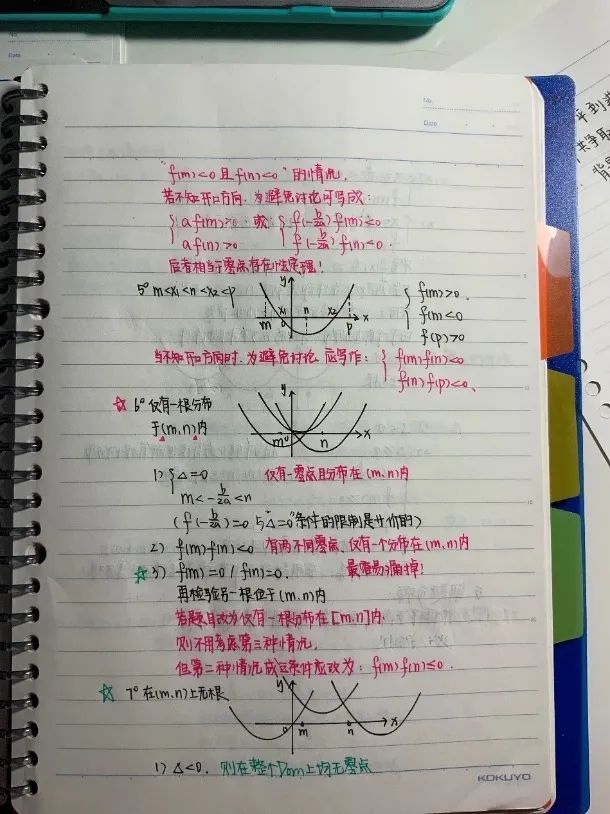 No.
Date
No.
Date
"f(m)<0 且 f(n)<0"的情况.
若不知开口方向.为避免讨论可写成:
{ a f(m)>0 或 { f(-b/2a) f(m)<0
a f(n)>0 f(-b/2a) f(n)<0.
后者相当于零点存在性定理!
5° m<x₁<n<x₂<p
y
x₁ n x₂
m o p x
{ f(m)>0.
f(m)<0
f(p)>0
当不知开口方向时.为避免讨论 应写作: { f(m)f(n)<0
f(n)f(p)<0、
☆ 6° 仅有一根分布
于(m,n)内
y
m o n x
1) { Δ=0 仅有一零点且分布在(m,n)内
m<-b/2a<n
(f(-b/2a)=0与"Δ=0"条件的限制是廿价的)
2) f(m)f(n)<0 有两不同零点、仅有一个分布在(m,n)内
☆ 3) f(m)=0/f(n)=0. 最容易漏掉!
再检验另一根位于(m,n)内
若题目改为仅有一根分布在[m,n]内.
则不用考虑第三种情况.
但第二种情况成立条件应改为: f(m)f(n)≤0.
☆ 7° 在(m,n)上无根
y
o m n x
1) Δ<0. 则在整个Dom上均无零点
KOKUYO